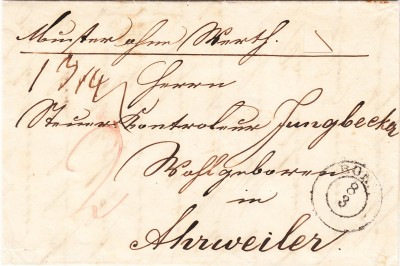 Muster ohne Werth.
Herrn
Steuer Kontroleur Jungbecker
Wohlgeboren
in
Ahrweiler.
8
3